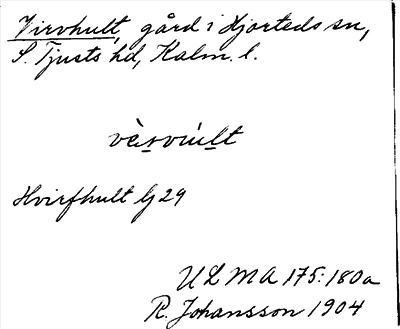 Virvhult, gård i Hjorteds sn,
S. Tjusts hd, Kalm. l.
Hvirfhult Lj 29
ULMA 175:180a
R. Johansson 1904